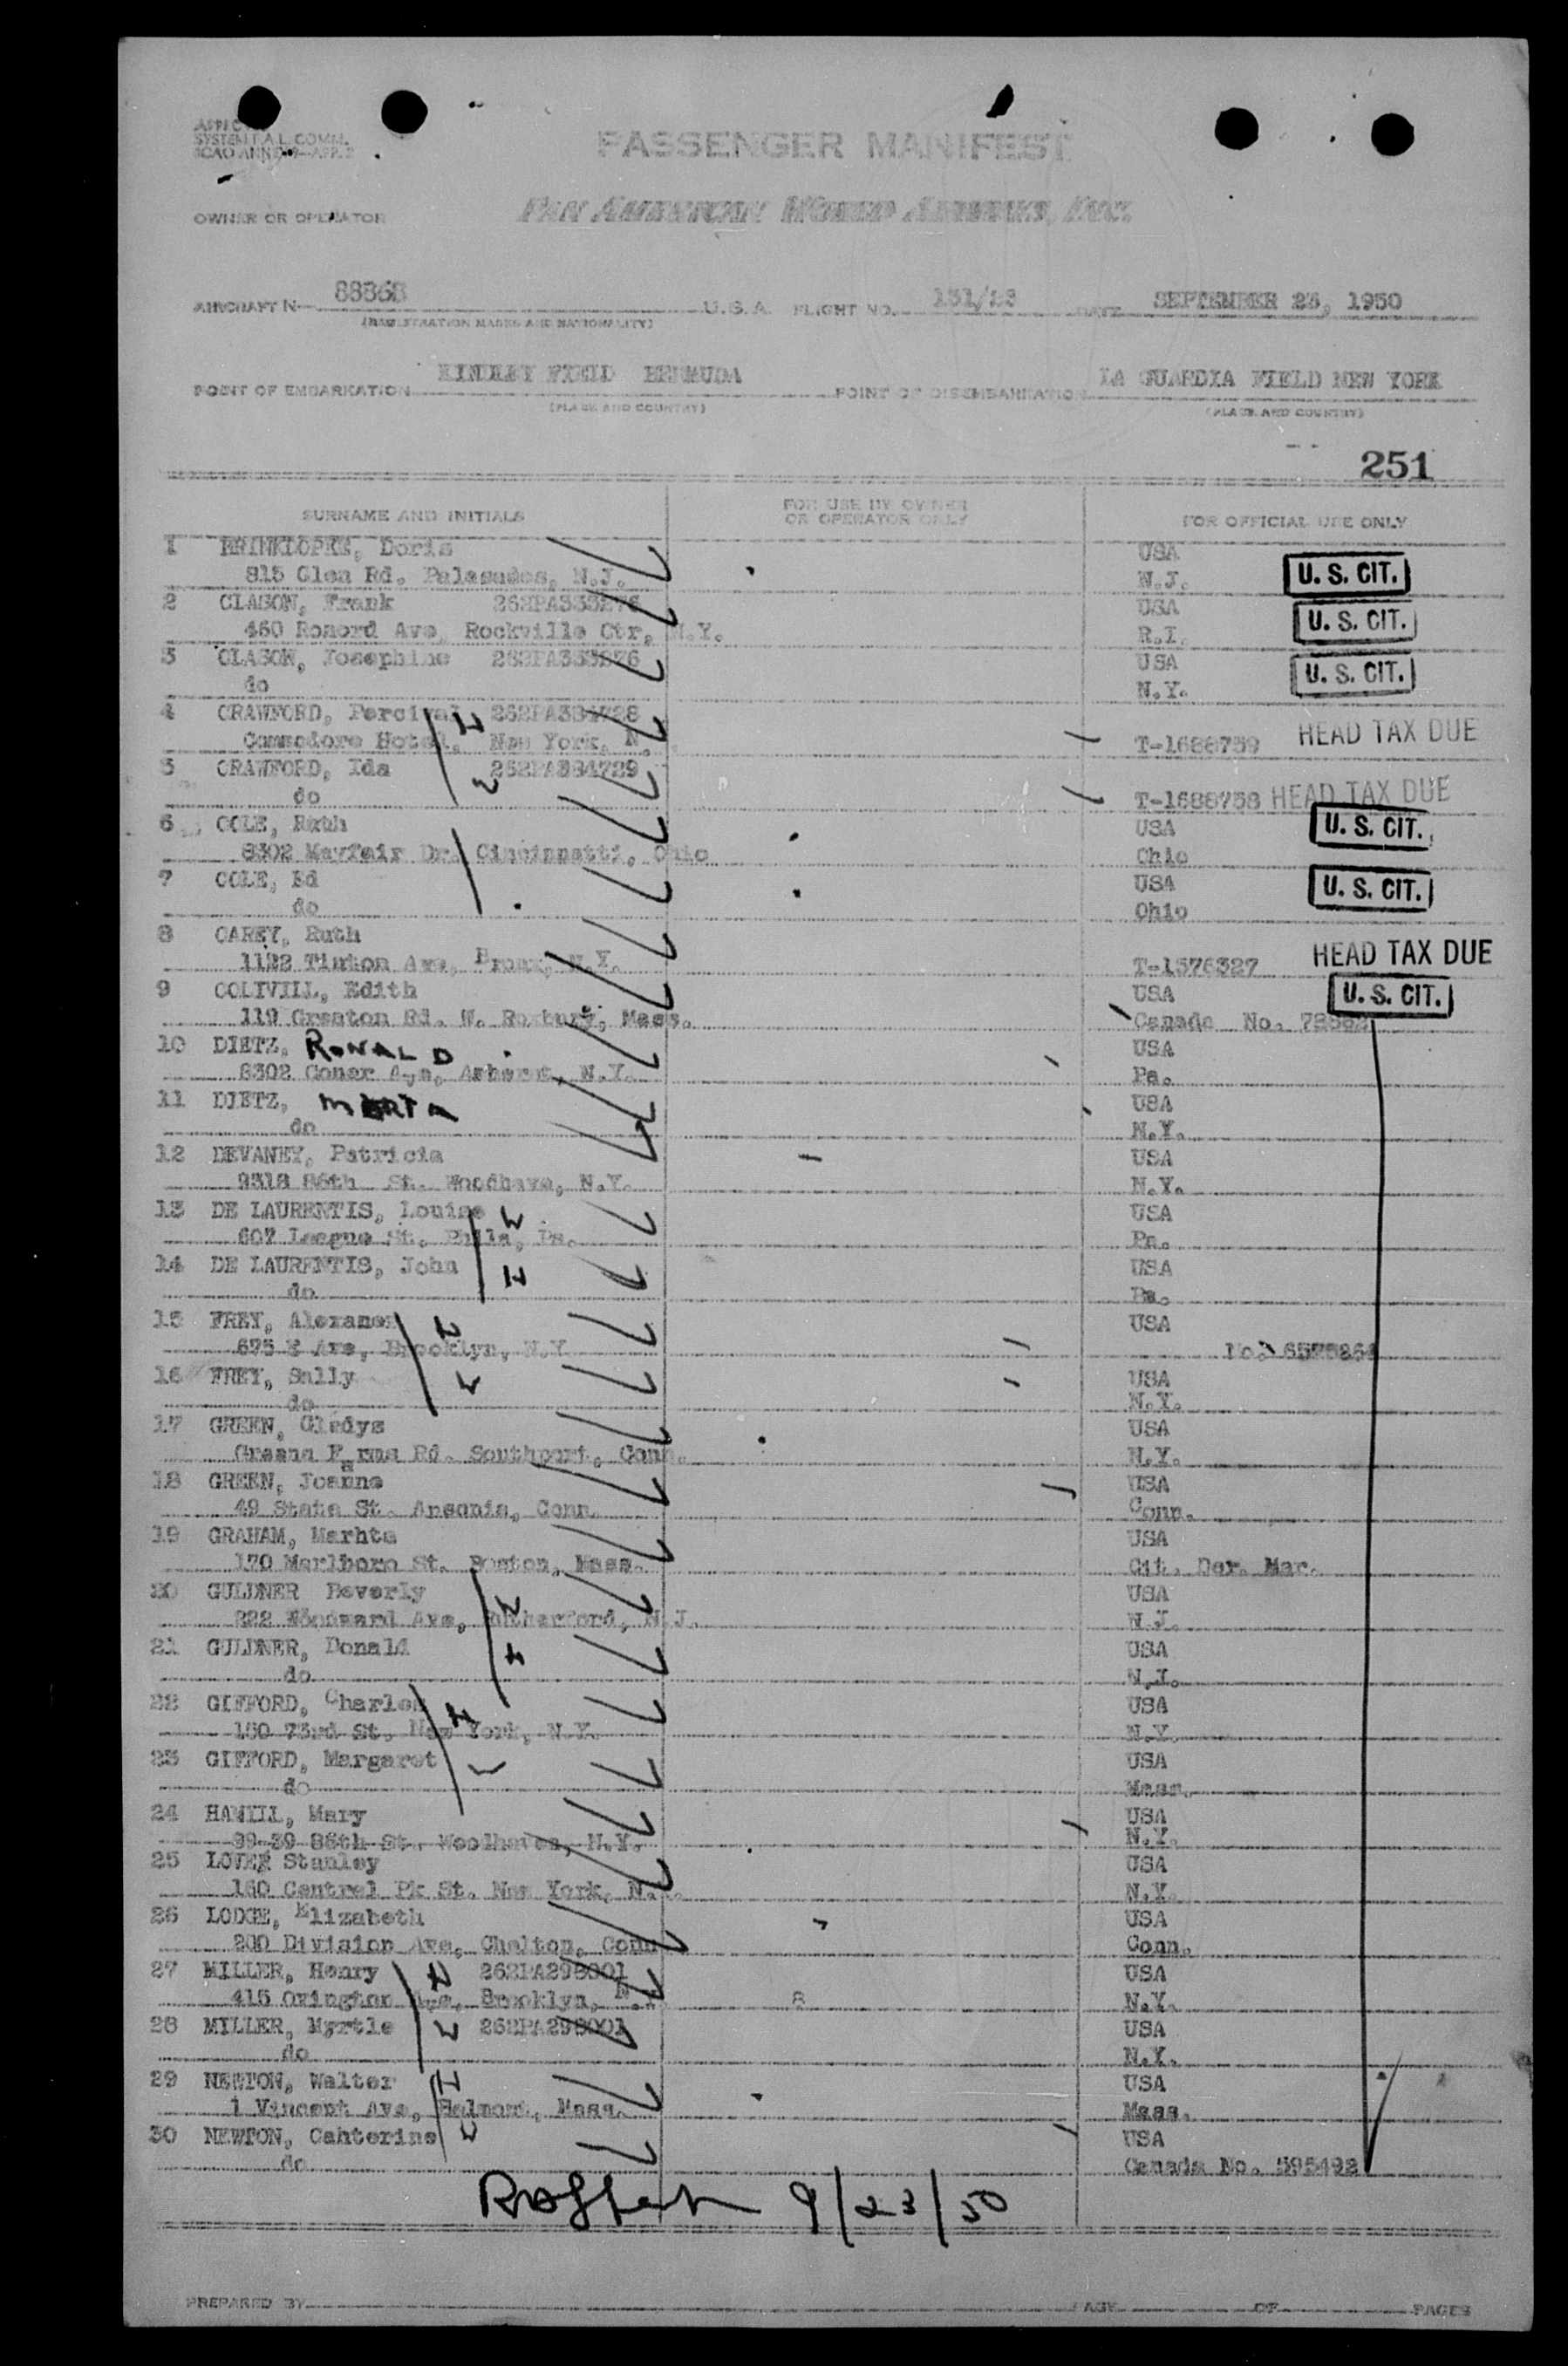 PASSENGER MANIFEST
OWNER OR OPERATOR
PAN AMERICAN WORLD AIRWAYS, INC.
AIRCRAFT N- 88868 U.S.A. FLIGHT NO. 131/23 DATE SEPTEMBER 23, 1950
(REGISTRATION MARKS AND NATIONALITY)
POINT OF EMBARKATION KINDLEY FIELD BERMUDA POINT OF DISEMBARKATION LA GUARDIA FIELD NEW YORK
(PLACE AND COUNTRY) (PLACE AND COUNTRY)
251
SURNAME AND INITIALS FOR USE BY OWNER OR OPERATOR ONLY FOR OFFICIAL USE ONLY
1 Doris USA
815 Glen Rd. N.J. N.J. U. S. CIT.
2 CLASON, Frank USA
460 Ave Rockville Ctr, N.Y. R.I. U. S. CIT.
3 CLASON, Josephine USA
do N.Y. U. S. CIT.
4 CRAWFORD, Percival 262PA334728
Commodore Hotel, New York, N. T-1688759 HEAD TAX DUE
5 CRAWFORD, Ida 262PA334729
do T-1688758 HEAD TAX DUE
6 COLE, Ruth USA U. S. CIT.
8302 Mayfair Dr. Cincinnatti, Ohio Ohio
7 COLE, Ed USA U. S. CIT.
do Ohio
8 CAREY, Ruth
1122 Tinton Ave, Bronx, N.Y. T-1576327 HEAD TAX DUE
9 COLIVILL, Edith USA U. S. CIT.
119 Greaton Rd. W. Roxbury, Mass. Canada No.
10 DIETZ, RONALD USA
8302 N.Y. Pa.
11 DIETZ, MARTA USA
do N.Y.
12 DEVANEY, Patricia USA
9318 86th St. N.Y. N.Y.
13 DE LAURENTIS, Louise USA
607 League St. Phila, Pa. Pa.
14 DE LAURENTIS, John USA
do Pa.
15 FREY, USA
675 E Ave, Brooklyn, N.Y No.
16 FREY, Sally USA
do N.Y.
17 GREEN, Gladys USA
Greens Farms Rd. Southport, Conn. N.Y.
18 GREEN, Joanne USA
49 State St. Ansonia, Conn. Conn.
19 GRAHAM, Marhta USA
170 Marlboro St. Boston, Mass. Cit. Der. Mar.
20 GULDNER Beverly USA
222 Woodward Ave, Rutherford, N.J. N.J.
21 GULDNER, Donald USA
do N.J.
22 GIFFORD, Charles USA
150 73rd St, New York, N.Y. N.Y.
23 GIFFORD, Margaret USA
do Mass.
24 Mary USA
89-39 86th St. N.Y. N.Y.
25 Stanley USA
160 Central Pk St. New York, N. N.Y.
26 LODGE, Elizabeth USA
200 Division Ave, Conn Conn.
27 MILLER, Henry 262PA298001 USA
415 Ovington Ave, Brooklyn, N.Y. 8 N.Y.
28 MILLER, Myrtle 262PA298001 USA
do N.Y.
29 NEWTON, Walter USA
1 Vincent Ave, Belmont, Mass. Mass.
30 NEWTON, Cahterine USA
do Canada No. 595492
9/23/50
PREPARED BY PAGE OF PAGES